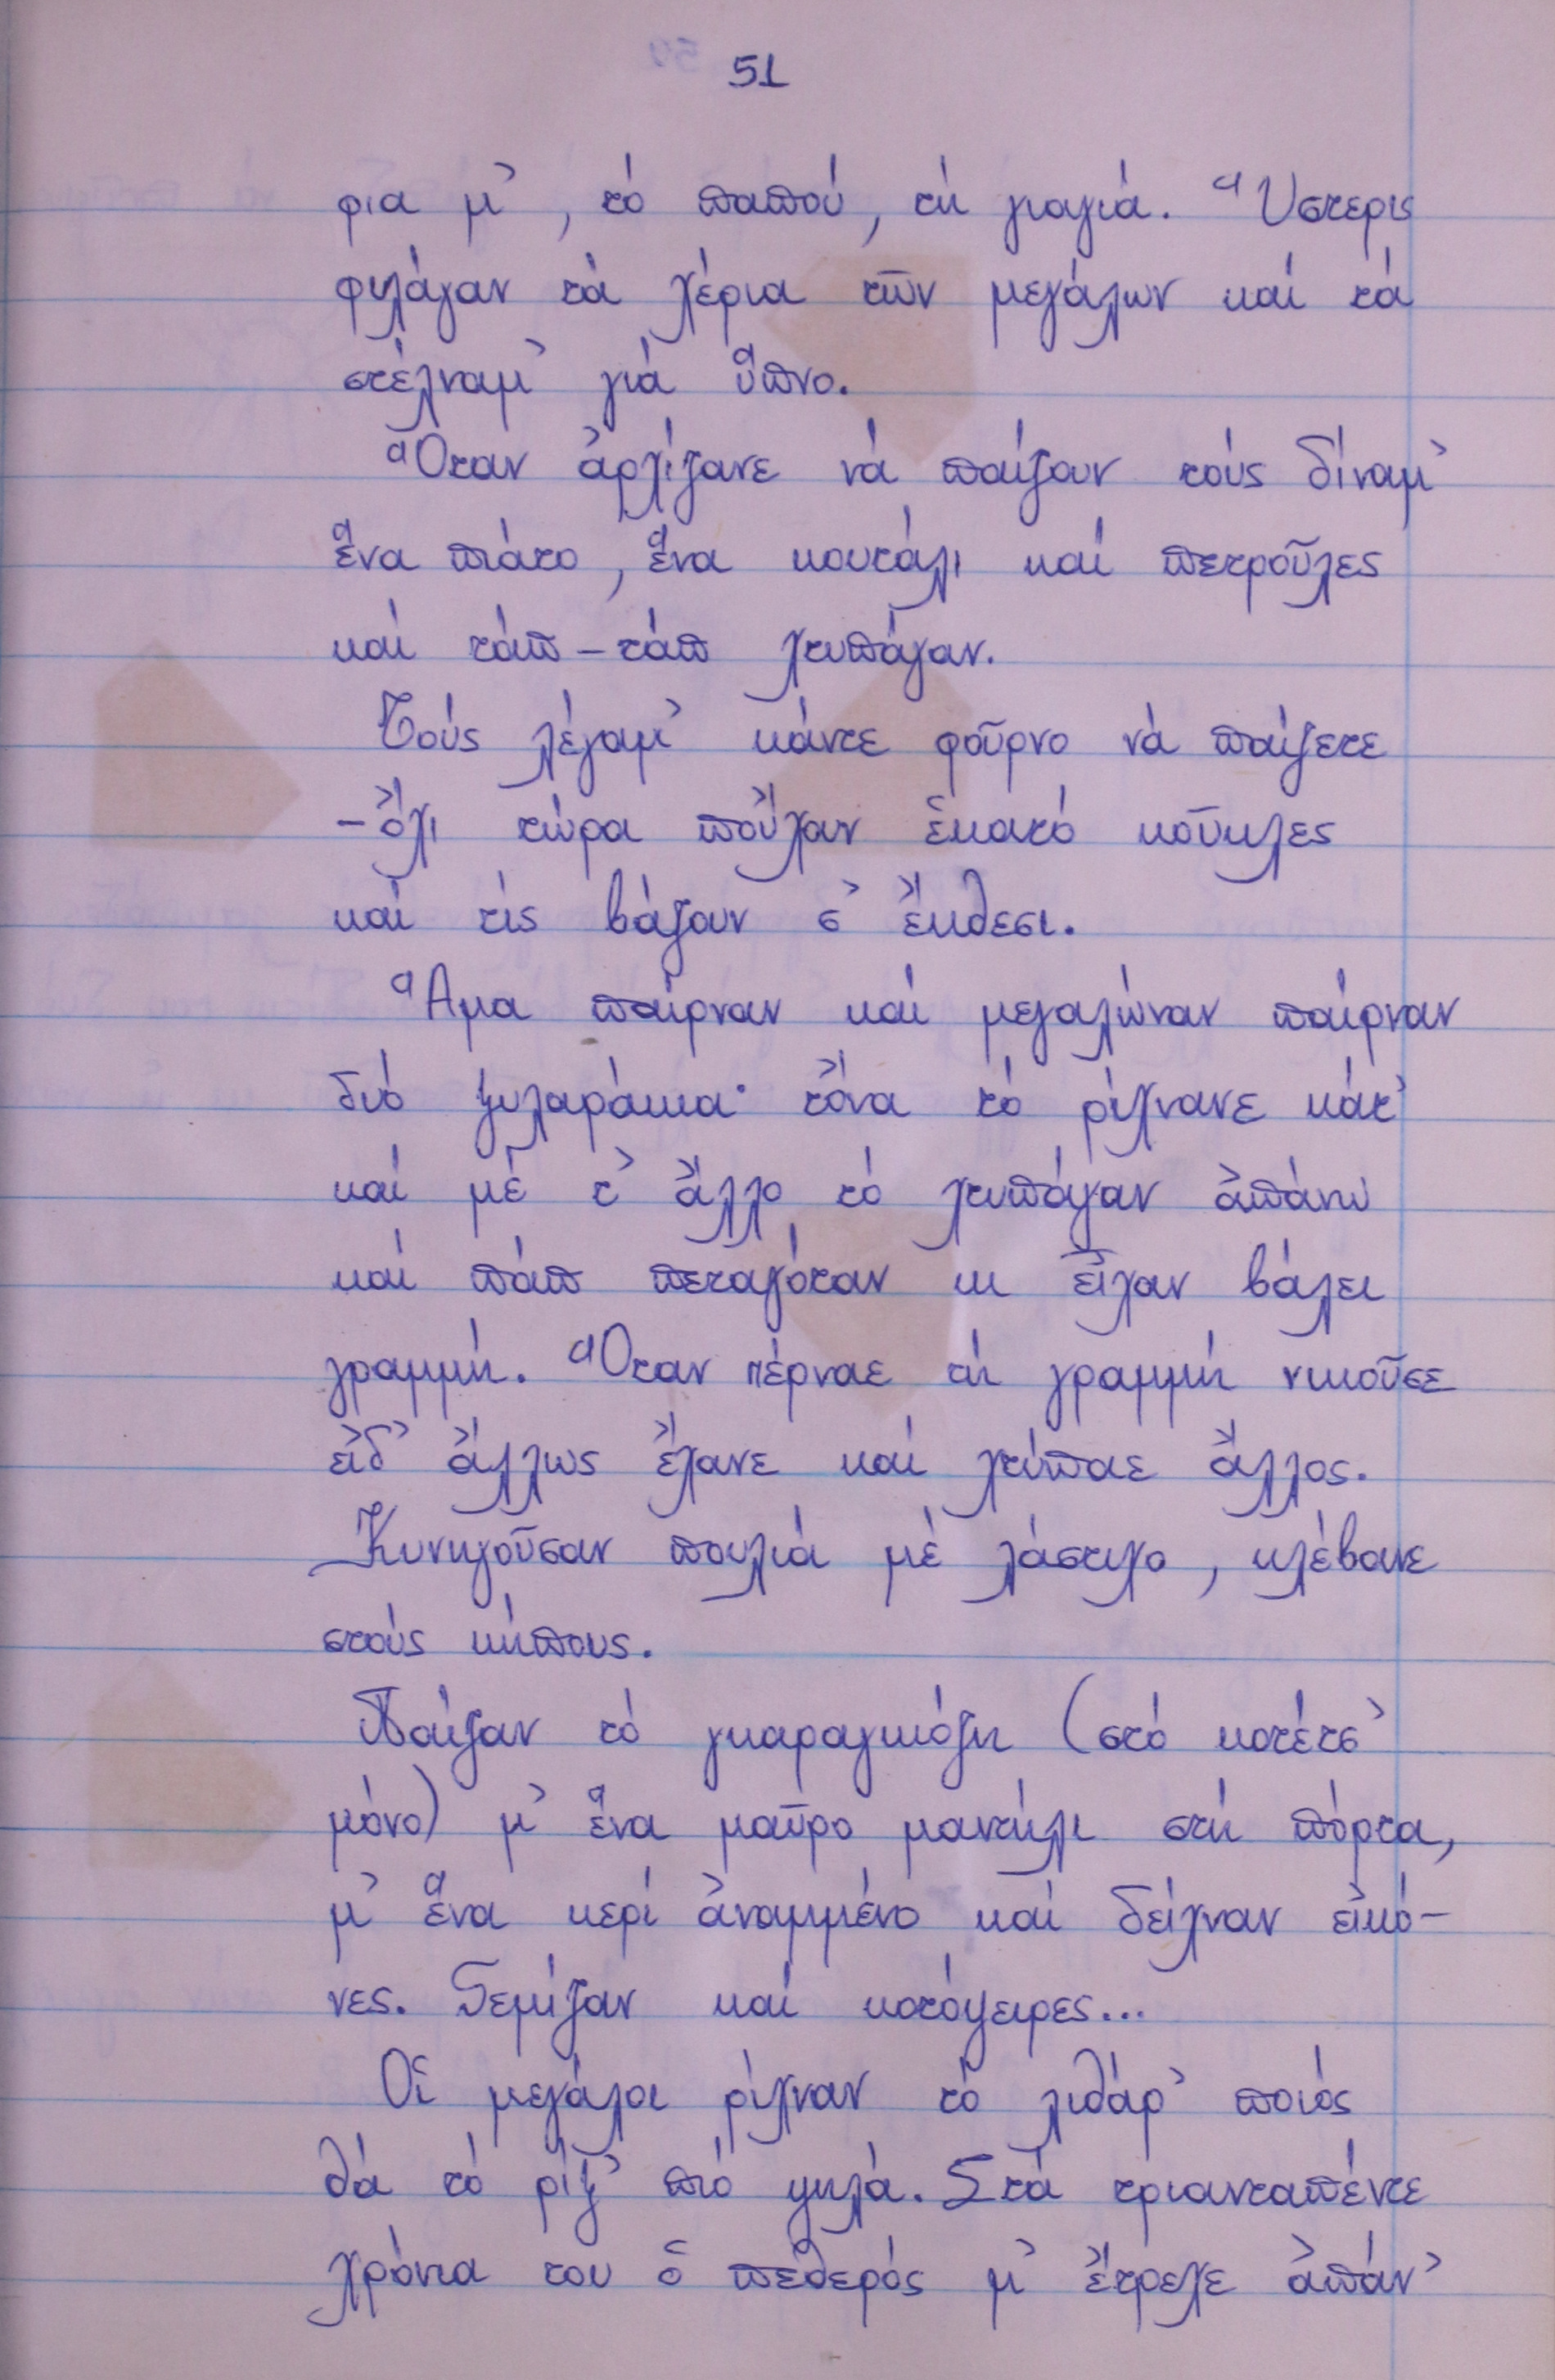 51
φια μ᾿, τό παπού, τή γιαγιά. Ὕστερις
φιλάγαν τά χέρια τῶν μεγάλων καί τά
στέλναμ᾿ γιά ὕπνο.
Ὅταν ἀρχίζανε νά παίζουν τούς δίναμ᾿
ἕνα πιάτο, ἕνα κουτάλι καί πετροῦλες
καί τάπ-τάπ χτυπάγαν.
Τούς λέγαμ᾿ κάντε φοῦρνο νά παίξετε
-ὄχι τώρα ποὔχαν ἑκατό κοῦκλες
καί τίς βάζουν σ᾿ ἔκθεσι.
Ἅμα παίρναν καί μεγαλώναν παίρναν
δυό ξυλαράκια· τὄνα τό ρίχνανε κάτ᾿
καί μέ τ᾿ ἄλλο τό χτυπάγαν ἀπάνω
καί πάπ πεταγόταν κι εἶχαν βάλει
γραμμή. Ὅταν πέρναε τή γραμμή νικοῦσε
εἰδ᾿ ἄλλως ἔχανε καί χτύπαε ἄλλος.
Κυνηγοῦσαν πουλιά μέ λάστιχο, κλέβανε
στούς κήπους.
Παίζαν τό γκαραγκιόζη (στό κοτέτσ᾿
μόνο) μ᾿ ἕνα μαῦρο μαντήλι στή πόρτα,
μ᾿ ἕνα κερί ἀναμμένο καί δείχναν εἰκό-
νες. Γεμίζαν καί κοτόψειρες...
Οἱ μεγάλοι ρίχναν τό λιθάρ᾿ ποιός
θά τό ρίξ᾿ πιό ψηλά. Στά τριανταπέντε
χρόνια του ὁ πεθερός μ᾿ ἔτρεχε ἀπάν᾿